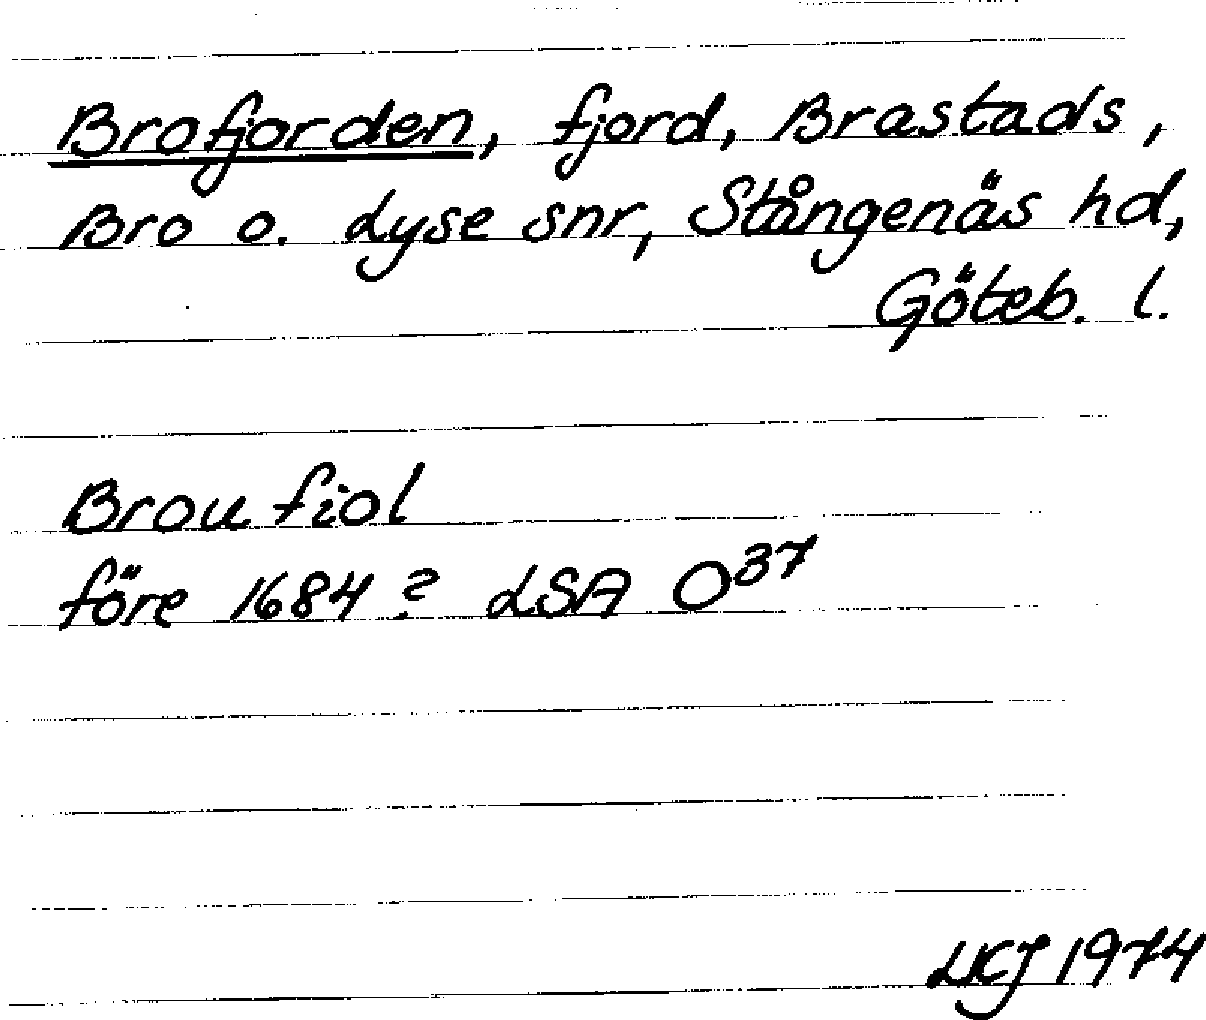 Brofjorden, fjord, Brastads,
Bro o. Lyse snr, Stångenäs hd,
Göteb. l.
Brou fiol
före 1684? LSA O37
LKJ 1974